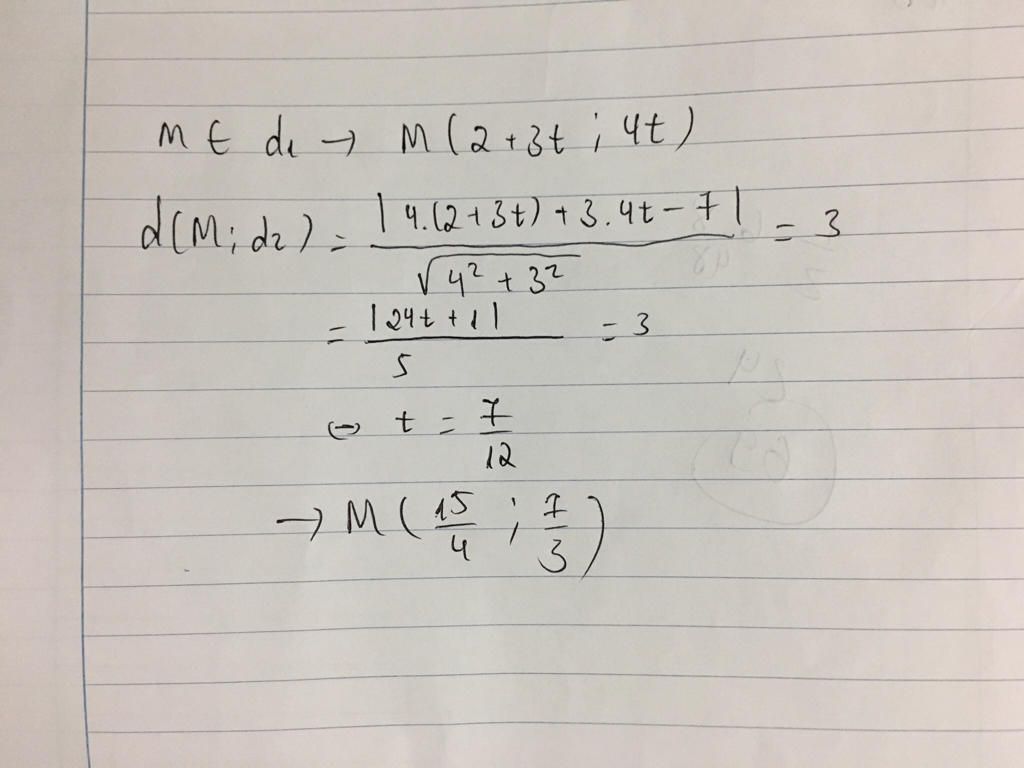 M ∈ d₁ → M(2+3t ; 4t)
d(M; d₂) = |4.(2+3t)+3.4t-7| / √(4²+3²) = 3
= |24t+1| / 5 = 3
⇔ t = 7/12
→ M(15/4 ; 7/3)